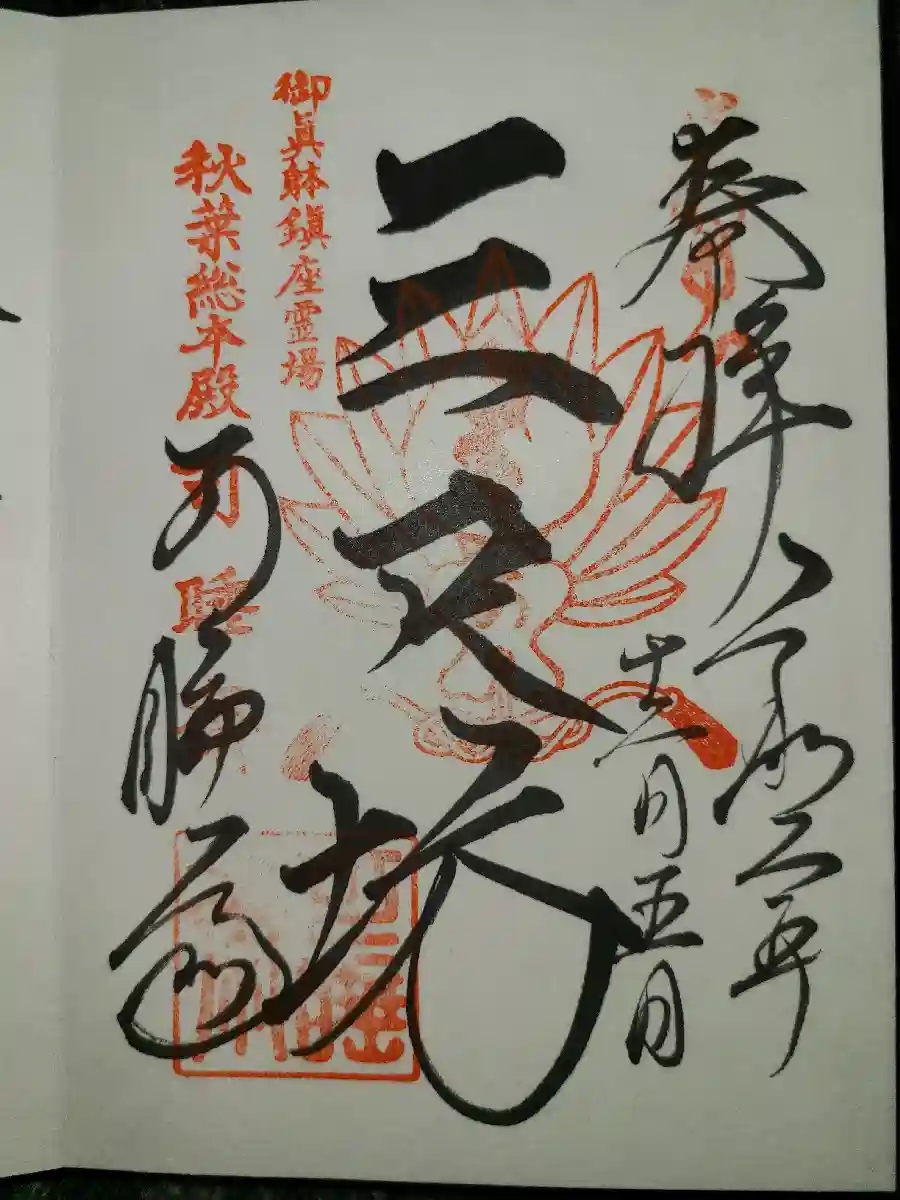 奉拝 令和二年
十二月五日
三尺坊
御眞躰鎭座霊場
秋葉総本殿
可睡斎